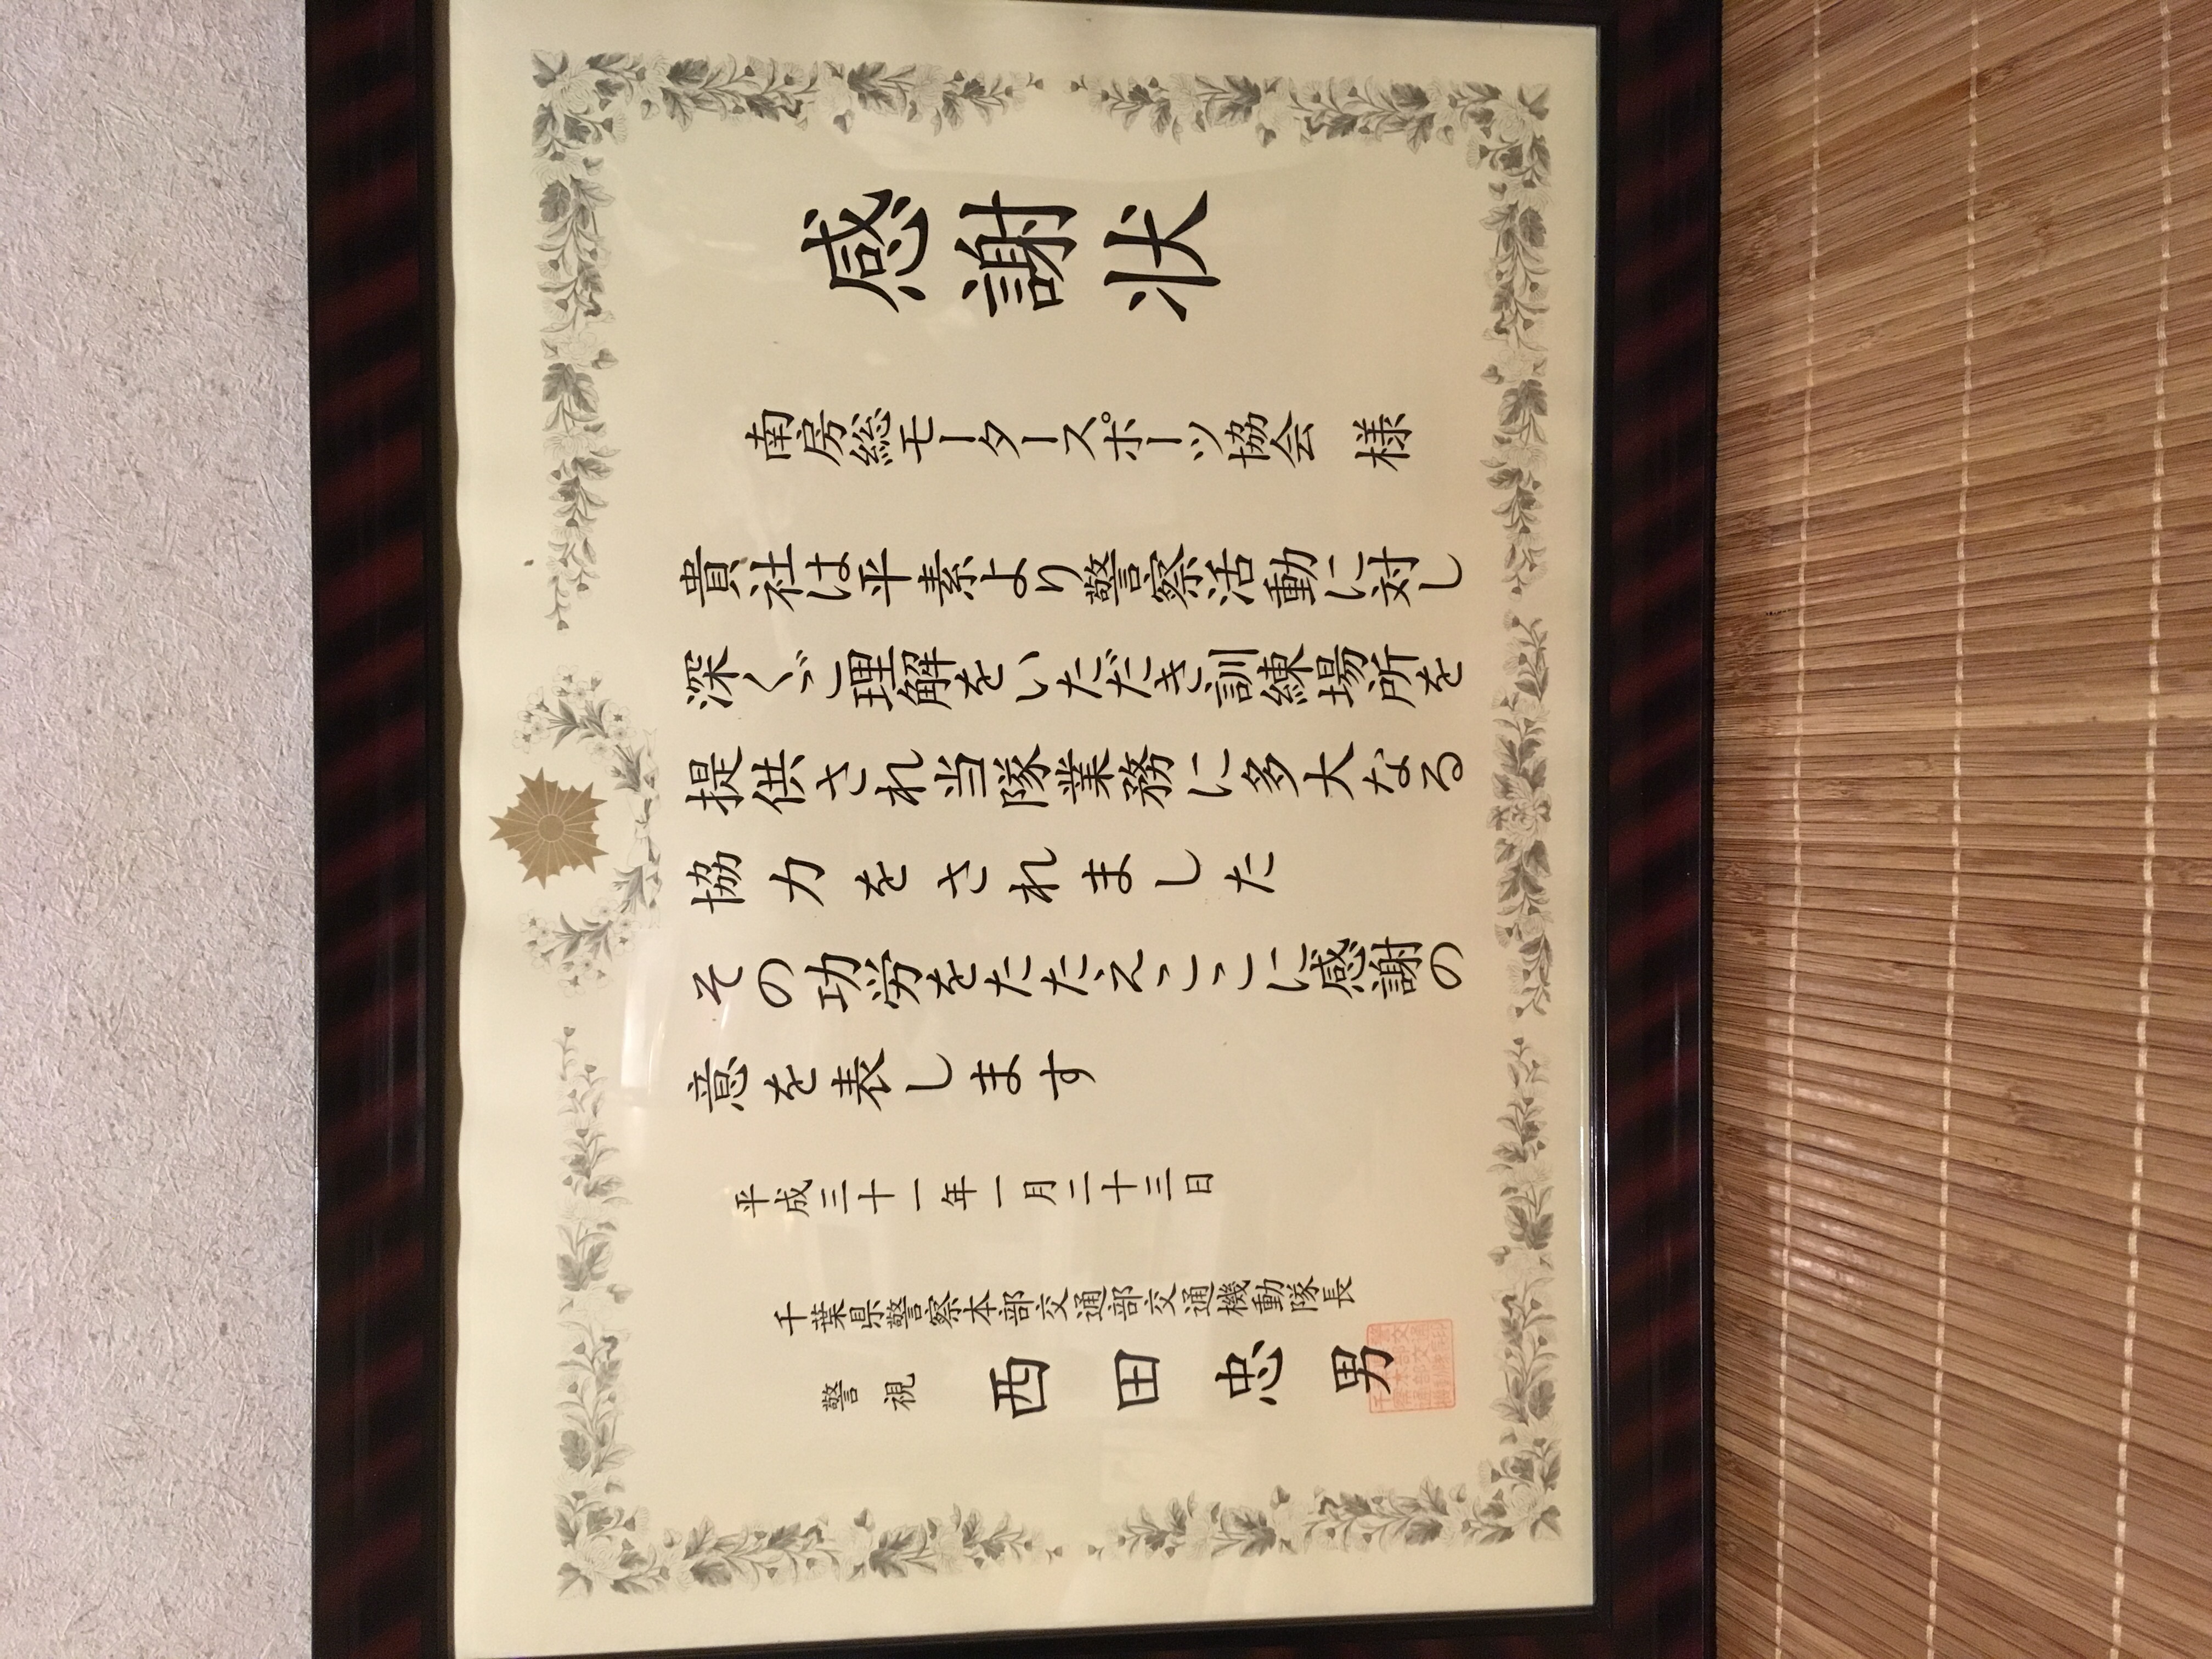 感謝状
南房総モータースポーツ協会 様
貴社は平素より警察活動に対し
深くご理解をいただき訓練場所を
提供され当隊業務に多大なる
協力をされました
その功労をたたえここに感謝の
意を表します
平成三十一年一月二十三日
千葉県警察本部交通部交通機動隊長
警視 西田忠男